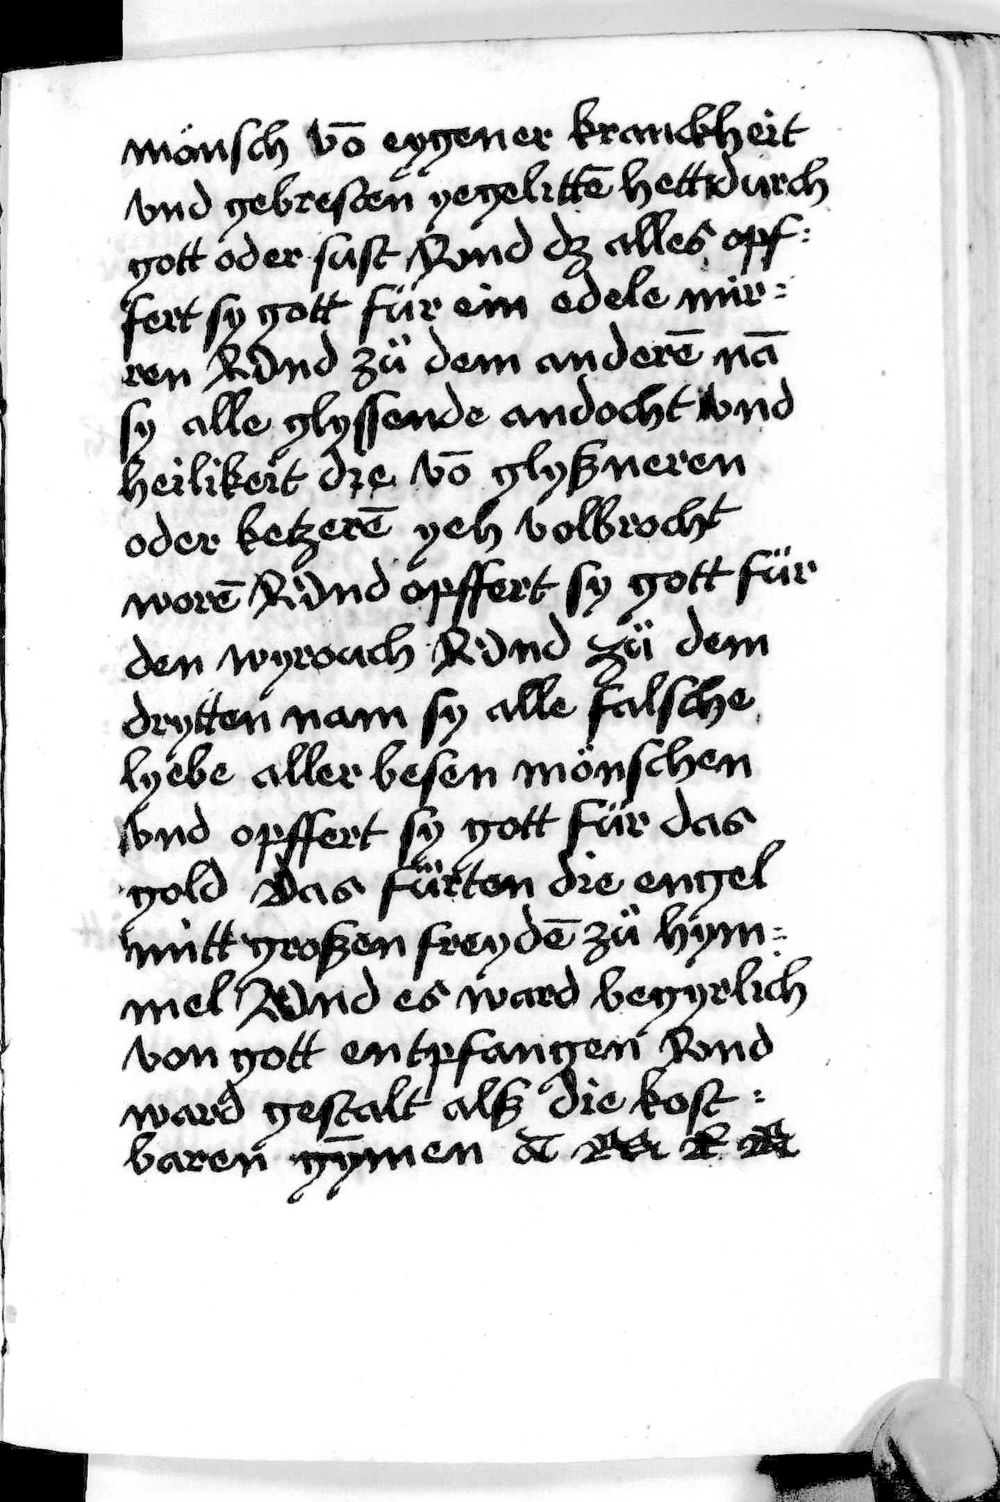 mönsch vō eygener kranckheit
vnd gebresten yegelittē hett durch
gott oder sust Vnd dz alles opf:
fert sy gott für ein edele mir:
ren Vnd zů dem anderē nā
sy alle glyssende andocht vnd
heilikeit die vō glyßneren
oder ketzerē yeh volbrocht
worē Vnd opffert sy gott für
den wyroůch Vnd zů dem
drytten nam sy alle falsche
lyebe aller besen mönschen
vnd opffert sy gott für das
gold Das fürten die engel
mitt großen freydē zů hym:
mel Vnd es ward begyrlich
von gott entpfangen Vnd
ward gestalt alß die kost:
baren gymmen